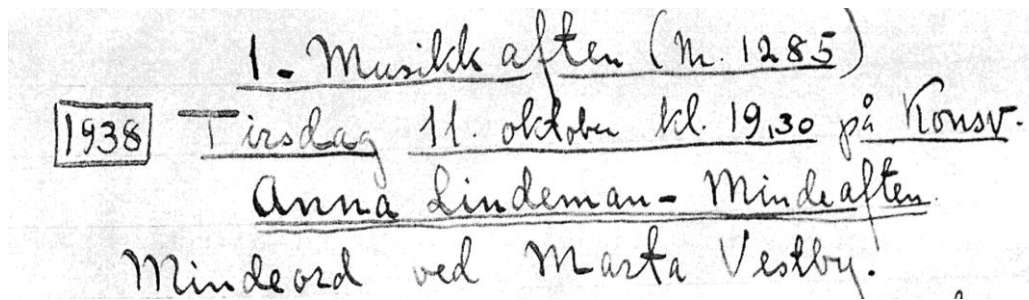 1. Musikkaften (M. 1285)
1938 Tirsdag 11. oktober kl. 19,30 på Konsv.
Anna Lindeman - Mindeaften.
Mindeord ved Marta Vestby.